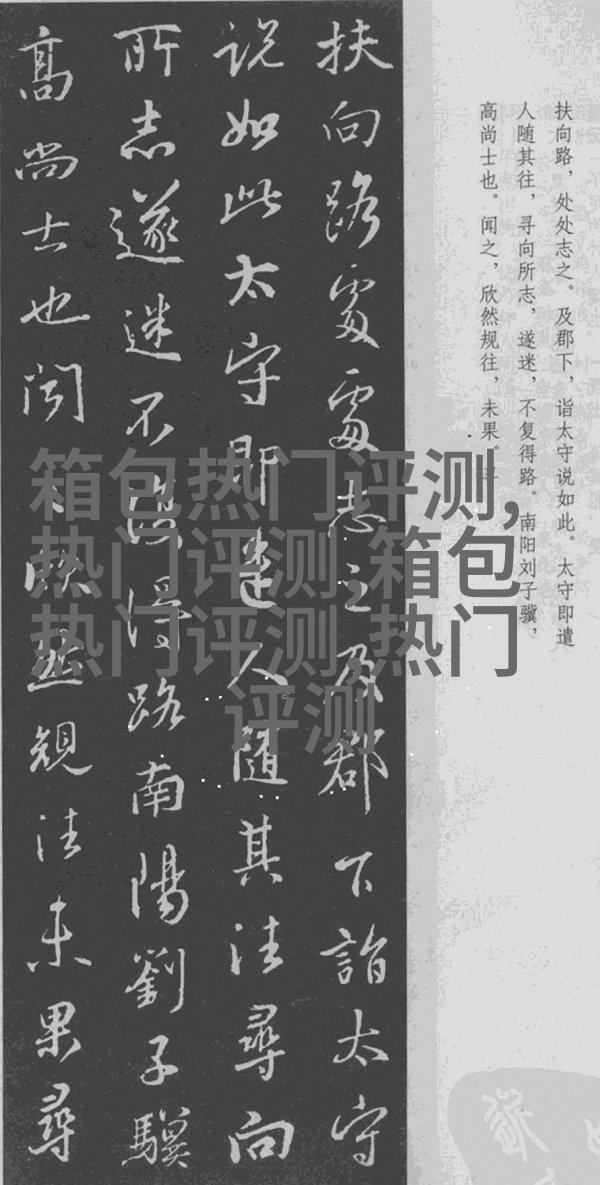 扶向路處處志之及郡下詣太守
说如此太守即遣人随其往尋向
所志遂迷不復得路南陽劉子驥
高尚士也闻之欣然規往未果尋
扶向路，处处志之。及郡下，诣太守说如此。太守即遣
人随其往，寻向所志，遂迷，不复得路。南阳刘子骥，
高尚士也。闻之，欣然规往，未果。寻
箱包热门评测,
热门评测,箱包,
热门评测,热门
评测